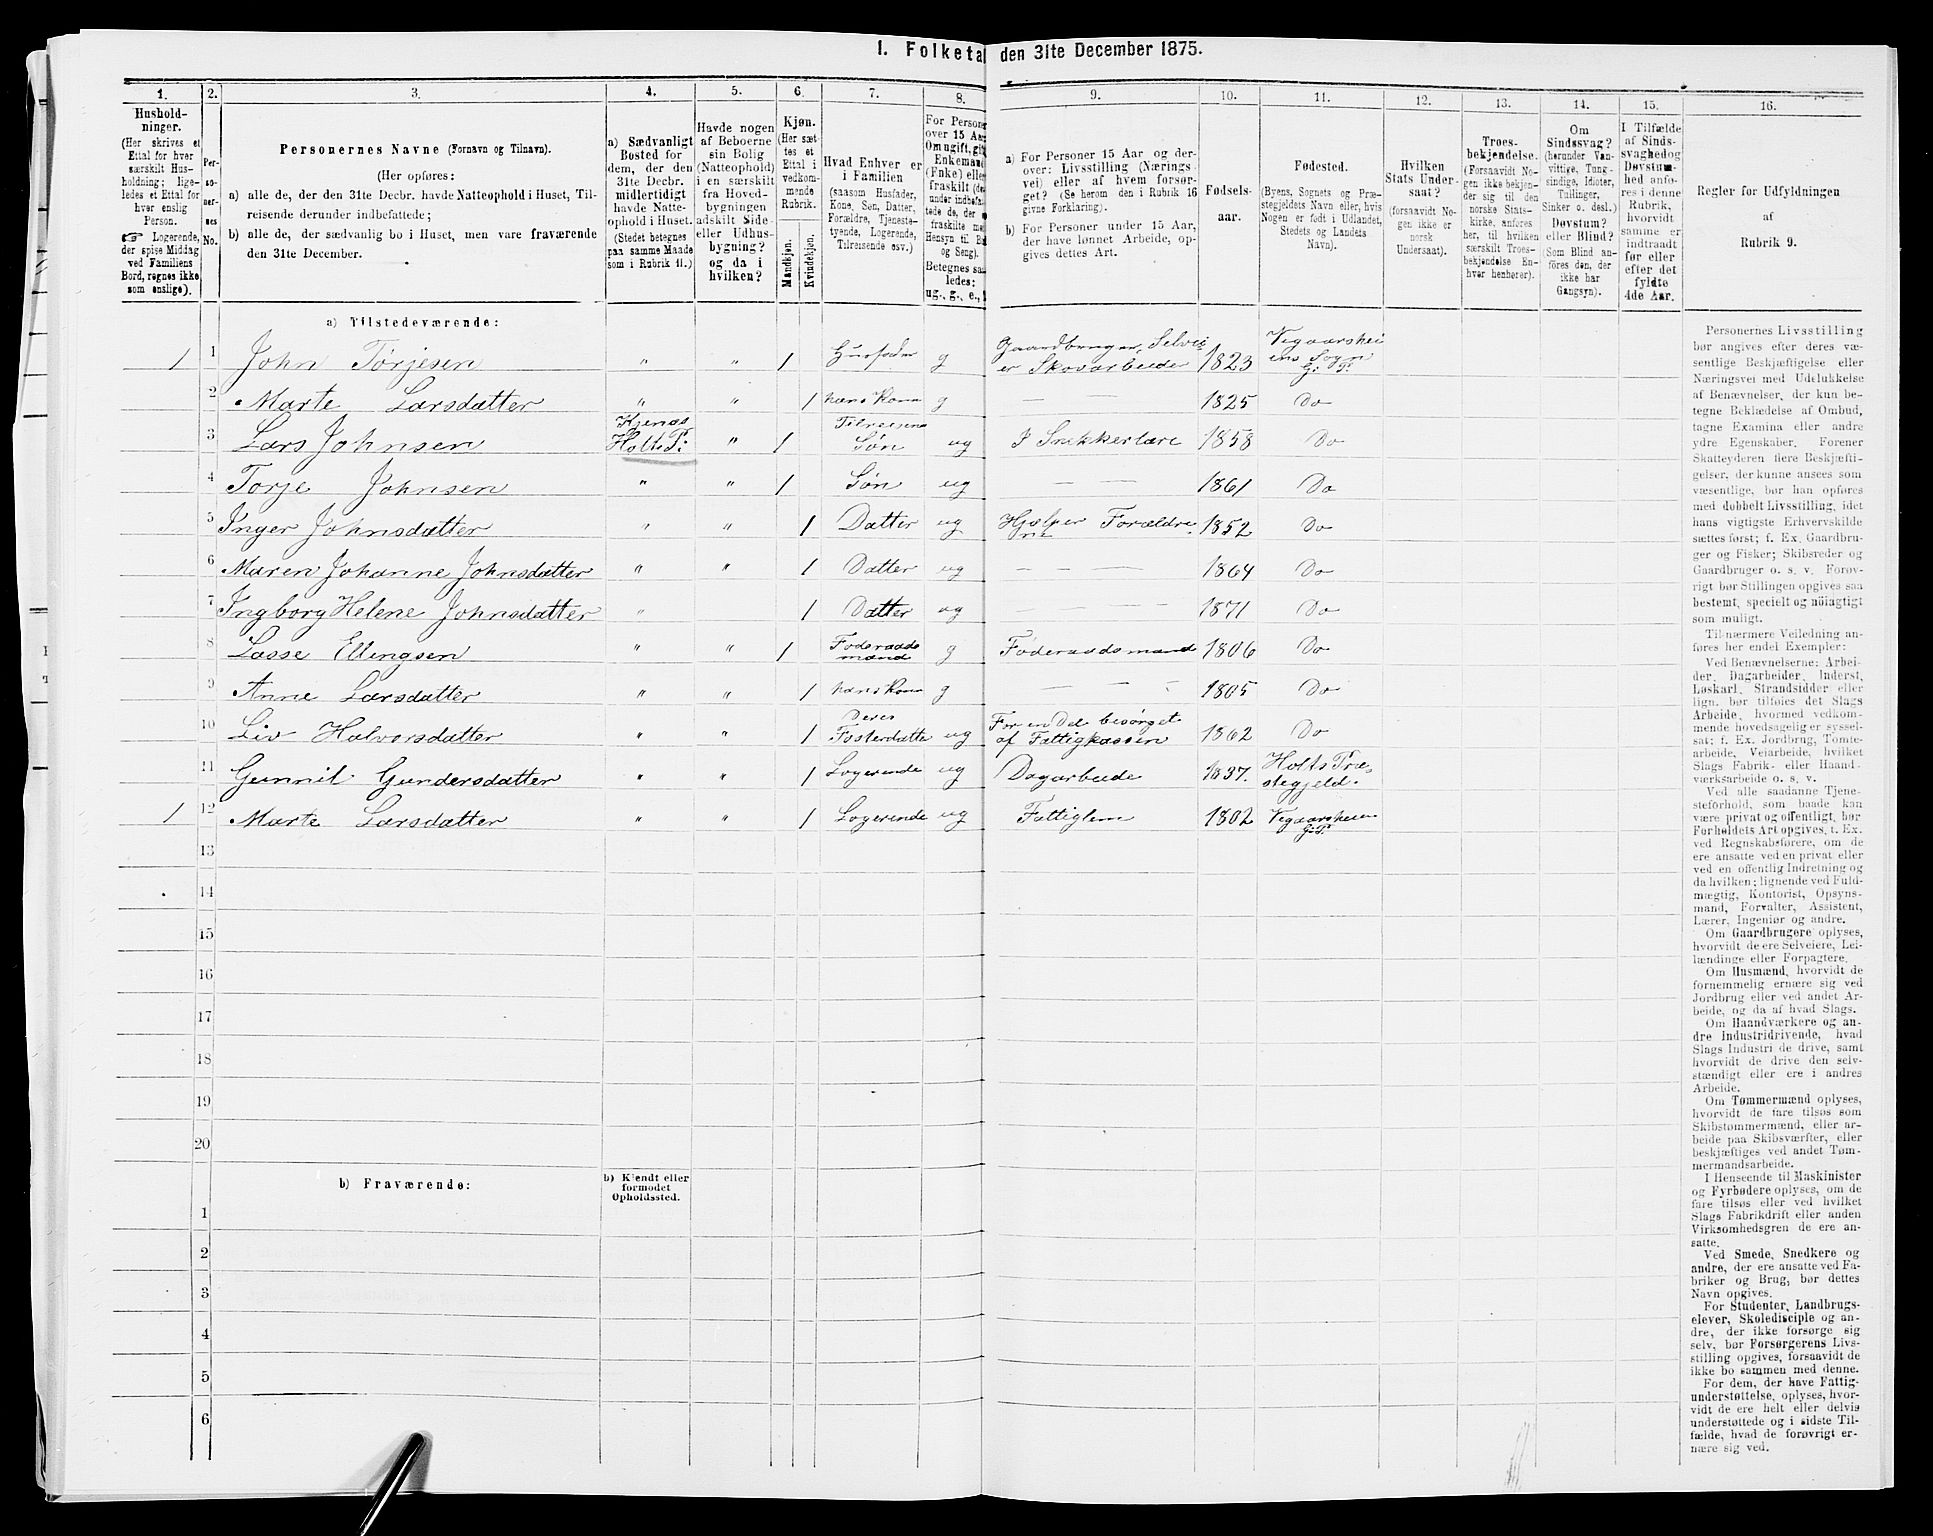 1. Folketa den 31te December 1875.
1. 2. 3. 4. 5. 6. 7. 8. 9. 10. 11. 12. 13. 14. 15. 16.
Hushold-
ninger.
(Her skrives et
Ettal for hver
særskilt Hus-
holdning; lige-
ledes et Ettal for
hver enslig
Person.
☞ Logerende,
der spise Middag
ved Familiens
Bord, regnes ikke
som enslige).
Per-
so-
ner-
nes
No.
Personernes Navne (Fornavn og Tilnavn).
(Her opføres:
a) alle de, der den 31te Decbr. havde Natteophold i Huset, Til-
reisende derunder indbefattede;
b) alle de, der sædvanlig bo i Huset, men vare fraværende
den 31te December.
a) Sædvanligt
Bosted for
dem, der den
31te Decbr.
midlertidigt
havde Natte-
ophold i Huset.
(Stedet betegnes
paa samme Maade
som i Rubrik 11.)
Havde nogen
af Beboerne
sin Bolig
(Natteophold)
i en særskilt
fra Hoved-
bygningen
adskilt Side-
eller Udhus-
bygning?
og da i
hvilken?
Kjøn.
(Her sæt-
tes et
Ettal i
vedkom-
mende
Rubrik.
Mandkjøn.
Kvindekjøn.
Hvad Enhver er
i Familien
(saasom Husfader,
Kone, Søn, Datter,
Forældre, Tjeneste-
tyende, Logerende,
Tilreisende osv.)
For Persone
over 15 Aar
Om ugift, gif
Enkemand
(Enke) elle
fraskilt (de
under indbefa
tede de, der
fraskilte me
Hensyn til B
og Seng).
Betegnes sa
ledes:
ug., g., e.,
a) For Personer 15 Aar og der-
over: Livsstilling (Nærings-
vei) eller af hvem forsør-
get? (Se herom den i Rubrik 16
givne Forklaring).
b) For Personer under 15 Aar,
der have lønnet Arbeide, op-
gives dettes Art.
Fødsels-
aar.
Fødested.
(Byens, Sognets og Præ-
stegjeldets Navn eller, hvis
Nogen er født i Udlandet,
Stedets og Landets
Navn).
Hvilken
Stats Under-
saat?
(forsaavidt No-
gen ikke er
norsk
Undersaat).
Troes-
bekjendelse.
(Forsaavidt No-
gen ikke bekjen-
der sig til den
norske Stats-
kirke, anføres
her, til hvilken
særskilt Troes-
bekjendelse En-
hver henhører).
Om
Sindssvag?
(herunder Van-
vittige, Tung-
sindige, Idioter,
Tullinger,
Sinker o. desl.)
Døvstum?
eller Blind?
(Som Blind an-
føres den, der
ikke har
Gangsyn).
I Tilfælde
af Sinds-
svaghed og
Døvstum-
hed anfø-
res i denne
Rubrik,
hvorvidt
samme er
indtraadt
før eller
efter det
fyldte
4de Aar.
Regler for Udfyldningen
af
Rubrik 9.
a) Tilstedeværende:
1 1 John Torjesen " " 1 Husfader g Gaardbruger, Selvei-
er Skovarbeider 1823 Vegaarshei-
ens Sogn
G. P.
2 Marte Larsdatter " " 1 hans Kone g — — 1825 Do
3 Lars Johnsen Holt P: " 1 Søn ug I Snekkerlære 1858 Do
4 Torje Johnsen " " 1 Søn ug — — 1861 Do
5 Inger Johnsdatter " " 1 Datter ug Hjælper Forældre
ne 1852 Do
6 Maren Johanne Johnsdatter " " 1 Datter ug — — — 1864 Do
7 Ingborg Helene Johnsdatter " 1 Datter ug — — — 1871 Do
8 Lasse Ellingsen " " 1 Føderaads
mand g Føderaadsmand 1806 Do
9 Anne Larsdatter " " 1 hans Kone g — — 1805 Do
10 Liv Halvorsdatter " " 1 Deres
Fosterdatte ug For en Del besørget
af Fattigkassen 1862 Do
11 Gunnil Gundersdatter " " 1 Logerende ug Dagarbeide 1837. Holts Præ-
stegjeld.
1 12 Marte Larsdatter " " 1 Logerende ug Fattiglem 1802 Vegaarsheien
G. P.
13
14
15
16
17
18
19
20
b) Fraværende:
b) Kjendt eller
formodet
Opholdssted.
1
2
3
4
5
6
Personernes Livsstilling
bør angives efter deres væ-
sentlige Beskjæftigelse eller
Næringsvei med Udelukkelse
af Benævnelser, der kun be-
tegne Beklædelse af Ombud,
tagne Examina eller andre
ydre Egenskaber. Forener
Skatteyderen flere Beskjæfti-
gelser, der kunne ansees som
væsentlige, bør han opføres
med dobbelt Livsstilling, idet
hans vigtigste Erhvervskilde
sættes først; f. Ex. Gaardbru-
ger og Fisker; Skibsreder og
Gaardbruger o. s. v. Forøv-
rigt bør Stillingen opgives saa
bestemt, specielt og nøiagtigt
som muligt.
Til nærmere Veiledning an-
føres her endel Exempler:
Ved Benævnelserne: Arbei-
der, Dagarbeider, Inderst,
Løskarl, Strandsidder eller
lign. bør tilføies det Slags
Arbeide, hvormed vedkom-
mende hovedsagelig er syssel-
sat; f. Ex. Jordbrug, Tomte-
arbeide, Veiarbeide, hvilket
Slags Fabrik- eller Haand-
værksarbeide o. s. v.
Ved alle saadanne Tjene-
steforhold, som baade kan
være privat og offentligt, bør
Forholdets Art opgives, f. Ex.
ved Regnskabsførere, om de
ere ansatte ved en privat eller
ved en offentlig Indretning og
da hvilken; lignende ved Fuld-
mægtig, Kontorist, Opsyns-
mand, Forvalter, Assistent,
Lærer, Ingeniør og andre.
Om Gaardbrugere oplyses,
hvorvidt de ere Selveiere, Lei-
lændinge eller Forpagtere.
Om Husmænd, hvorvidt de
fornemmelig ernære sig ved
Jordbrug eller ved andet Ar-
beide, og da af hvad Slags.
Om Haandværkere og an-
dre Industridrivende, hvad
Slags Industri de drive, samt
hvorvidt de drive den selv-
stændigt eller ere i andres
Arbeide.
Om Tømmermænd oplyses,
hvorvidt de fare tilsøs som
Skibstømmermænd, eller ar-
beide paa Skibsværfter, eller
beskjæftiges ved andet Tøm-
mermandsarbeide.
I Henseende til Maskinister
og Fyrbødere oplyses, om de
fare tilsøs eller ved hvilket
Slags Fabrikdrift eller anden
Virksomhedsgren de ere an-
satte.
Ved Smede, Snedkere og
andre, der ere ansatte ved Fa-
briker og Brug, bør dettes
Navn opgives.
For Studenter, Landbrugs-
elever, Skoledisciple og an-
dre, der ikke forsørge sig
selv, bør Forsørgerens Livs-
stilling opgives, forsaavidt de
ikke bo sammen med denne.
For dem, der have Fattig-
understøttelse, oplyses, hvor-
vidt de ere helt eller delvis
understøttede og i sidste Til-
fælde, hvad de forøvrigt er-
nære sig ved.